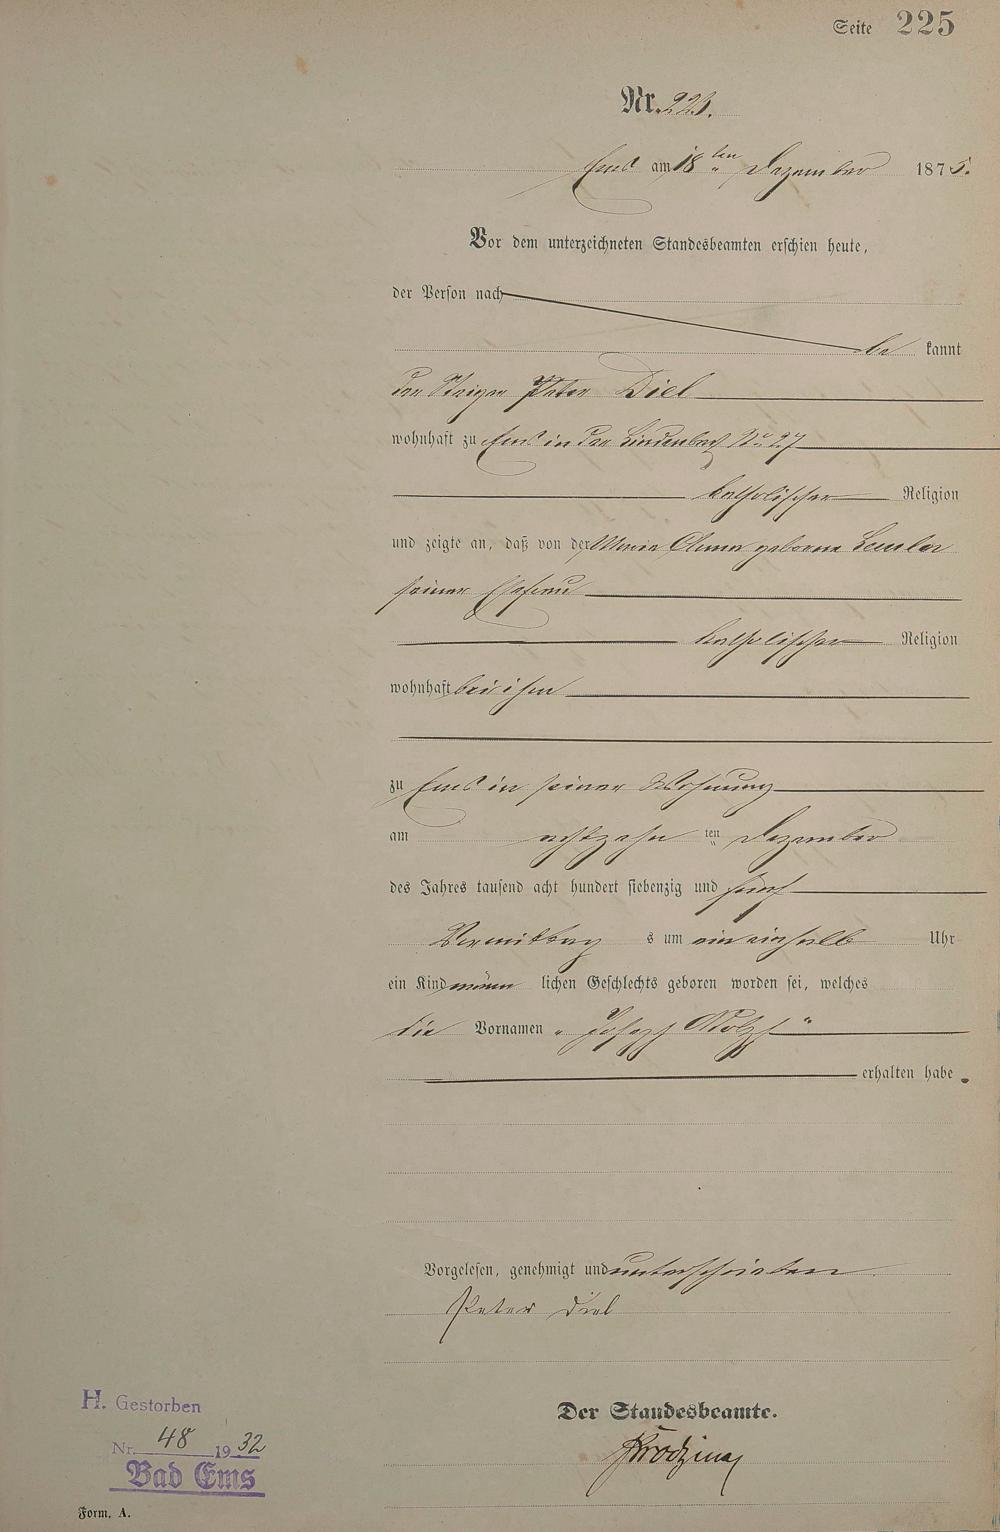 Seite 225
Nr. 223.
Ems am 18 ten Dezember 1875.
Vor dem unterzeichneten Standesbeamten erschien heute,
der Person nach
be kannt
der Steiger Peter Diel
wohnhaft zu Ems in der Lindenbach No 27
katholischer Religion
und zeigte an, daß von der Maria Anna geborne
seiner Ehefrau
katholischer Religion
wohnhaft bei ihm
zu Ems in seiner Wohnung
am achtzehn ten Dezember
des Jahres tausend acht hundert siebenzig und fünf
Vormittag s um ein einhalb Uhr
ein Kind männ lichen Geschlechts geboren worden sei, welches
die Vornamen „Joseph Adolph“
erhalten habe.
Vorgelesen, genehmigt und unterschrieben.
Peter Diel
Der Standesbeamte.
H. Gestorben
Nr. 48 1932
Bad Ems
Form. A.